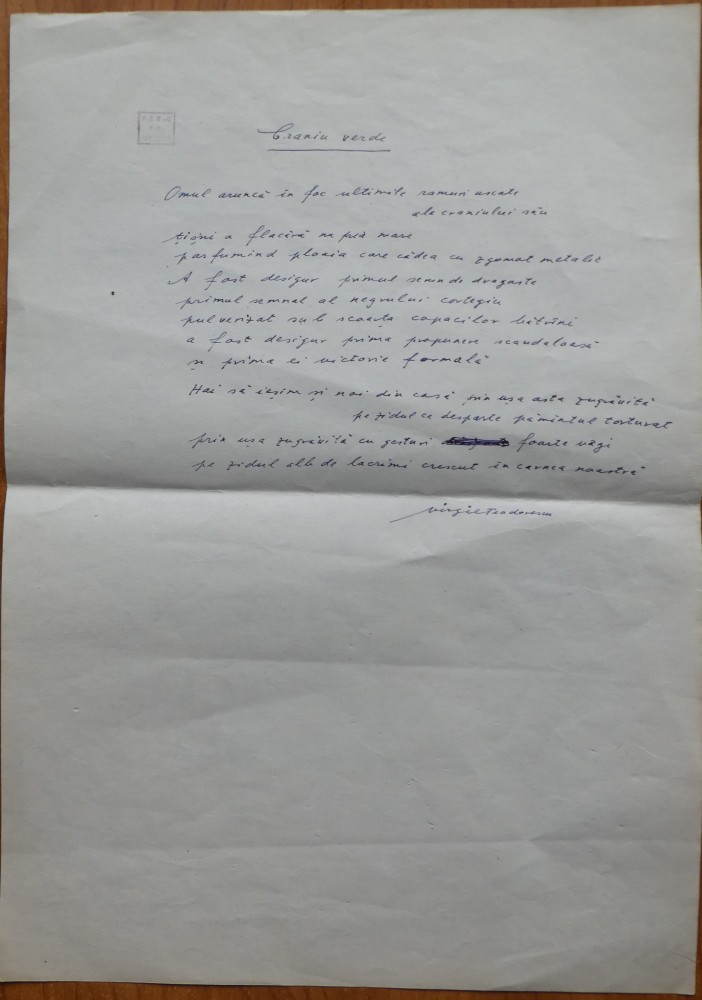 Craniu verde
Omul aruncă în foc ultimile ramuri uscate
ale craniului său
țîșni o flacără mare
parfumind ploaia care cădea cu zgomot metalic
A fost desigur primul semn de dragoste
primul semnal al negrului cortegiu
pulverizat sub scoarța copacilor bătrîni
a fost desigur prima propunere scandaloasă
și prima ei victorie formală
Hai să ieșim și noi din casă prin ușa asta zugrăvită
pe zidul ce desparte pămîntul torturat
prin ușa zugrăvită cu gesturi foarte vagi
pe zidul alb de lacrimi crescut în carnea noastră
Virgil Teodorescu